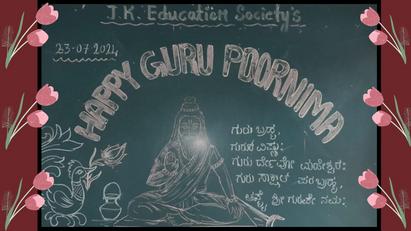 J.K. Education Society's
23-07-2021
HAPPY GURU POORNIMA
ಗುರು ಬ್ರಹ್ಮ,
ಗುರುರ ವಿಷ್ಣು:
ಗುರು ದೇವೋ ಮಹೇಶ್ವರ:
ಗುರು ಸಾಕ್ಷಾತ್ ಪರಬ್ರಹ್ಮ,
ಶ್ರೀ ಗುರುವೇ ನಮ: